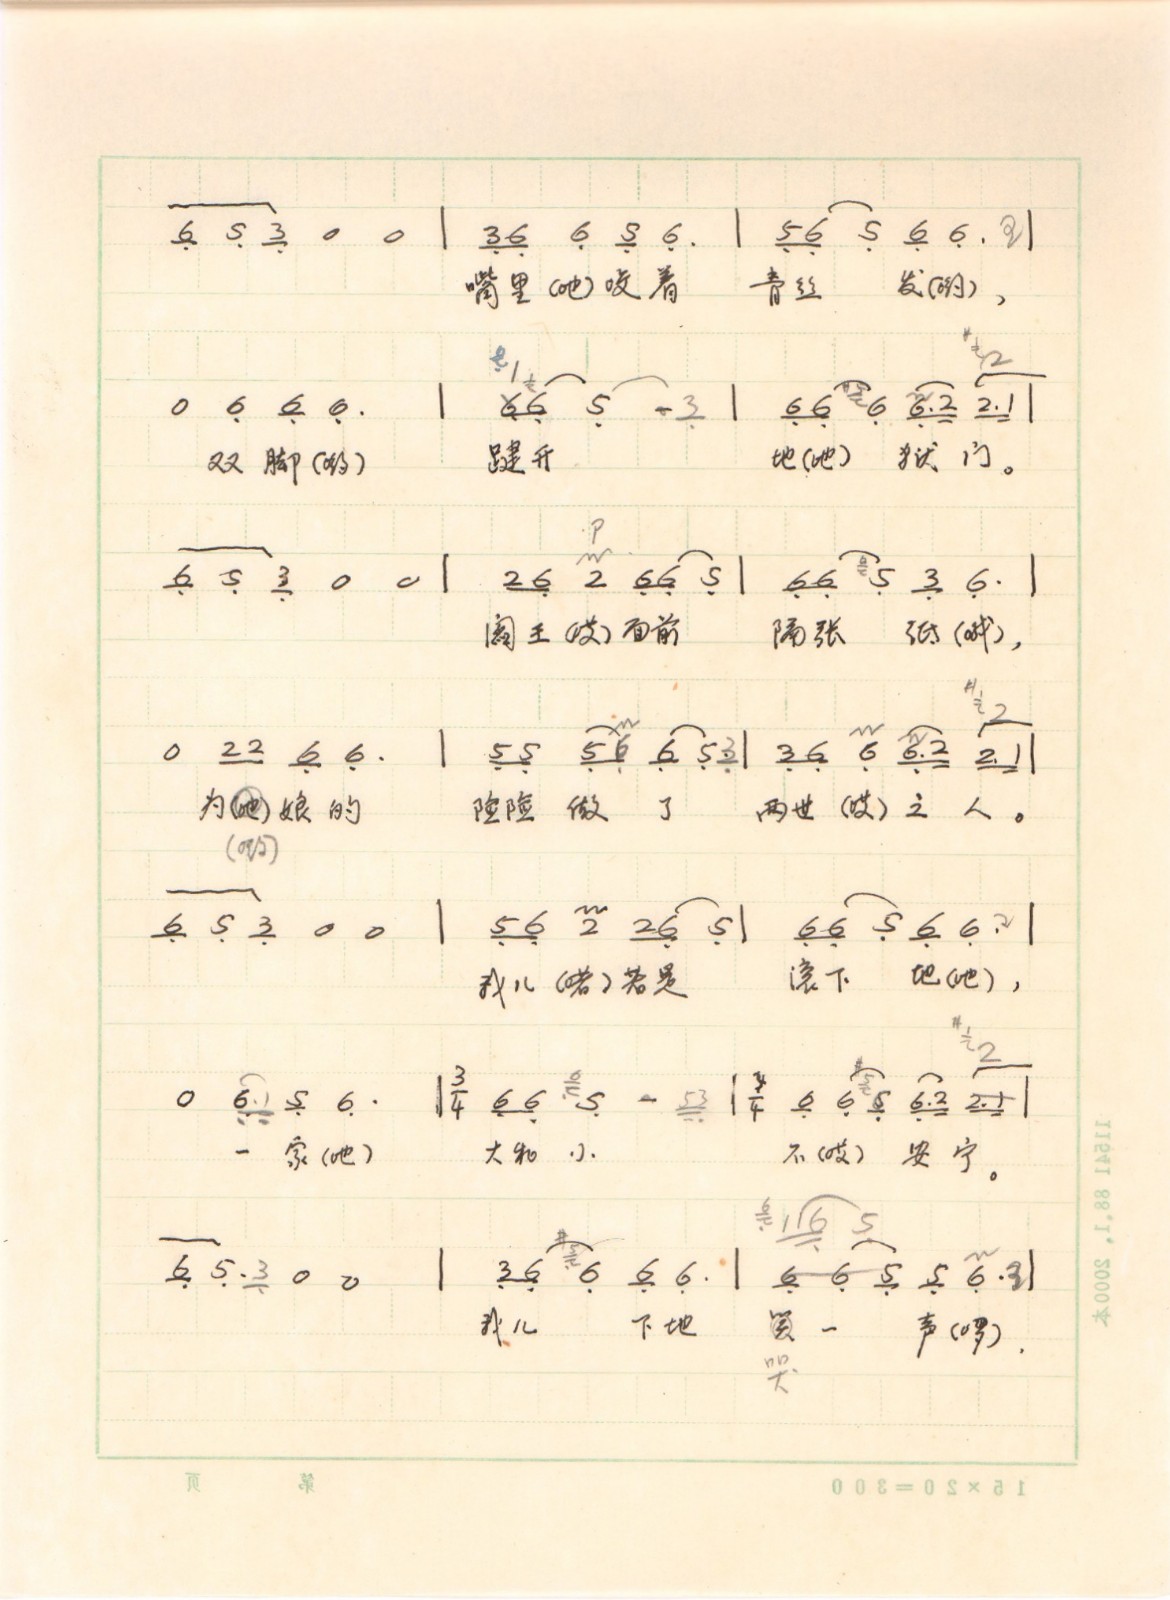 6 5 3 0 0 | 36 6 5 6. | 56 5 6 6. 2 |
嘴里(吔)咬着 青丝 发(哟),
1 2
0 6 6 6. | 66 5 - 3 | 66 6 6.2 2.1 |
双脚(哟) 踺开 地(吔) 狱门。
P
6 5 3 0 0 | 26 2 66 5 | 66 5 3 6. |
阎王(哎)面前 隔张 纸(哦),
2
0 22 6 6. | 55 56 6 53 | 36 6 6.2 2.1 |
为(吔)娘的 险险 做 了 两世(哎)之人。
(哟)
6 5 3 0 0 | 56 2 26 5 | 66 5 6 6. 2 |
我儿(喏)若是 滚下 地(吔),
2
0 6.1 5 6. | 3/4 66 5 - 53 | 4 6 6 5 6.2 2.1 |
一家(吔) 大和小 不(哎)安宁。
116 5
6 5.3 0 0 | 36 6 6 6. | 6 6 5 5 6. 3 |
我儿 下地 一 声(啰).
哭
第 页
15×20=300
11541 88.1. 2000本